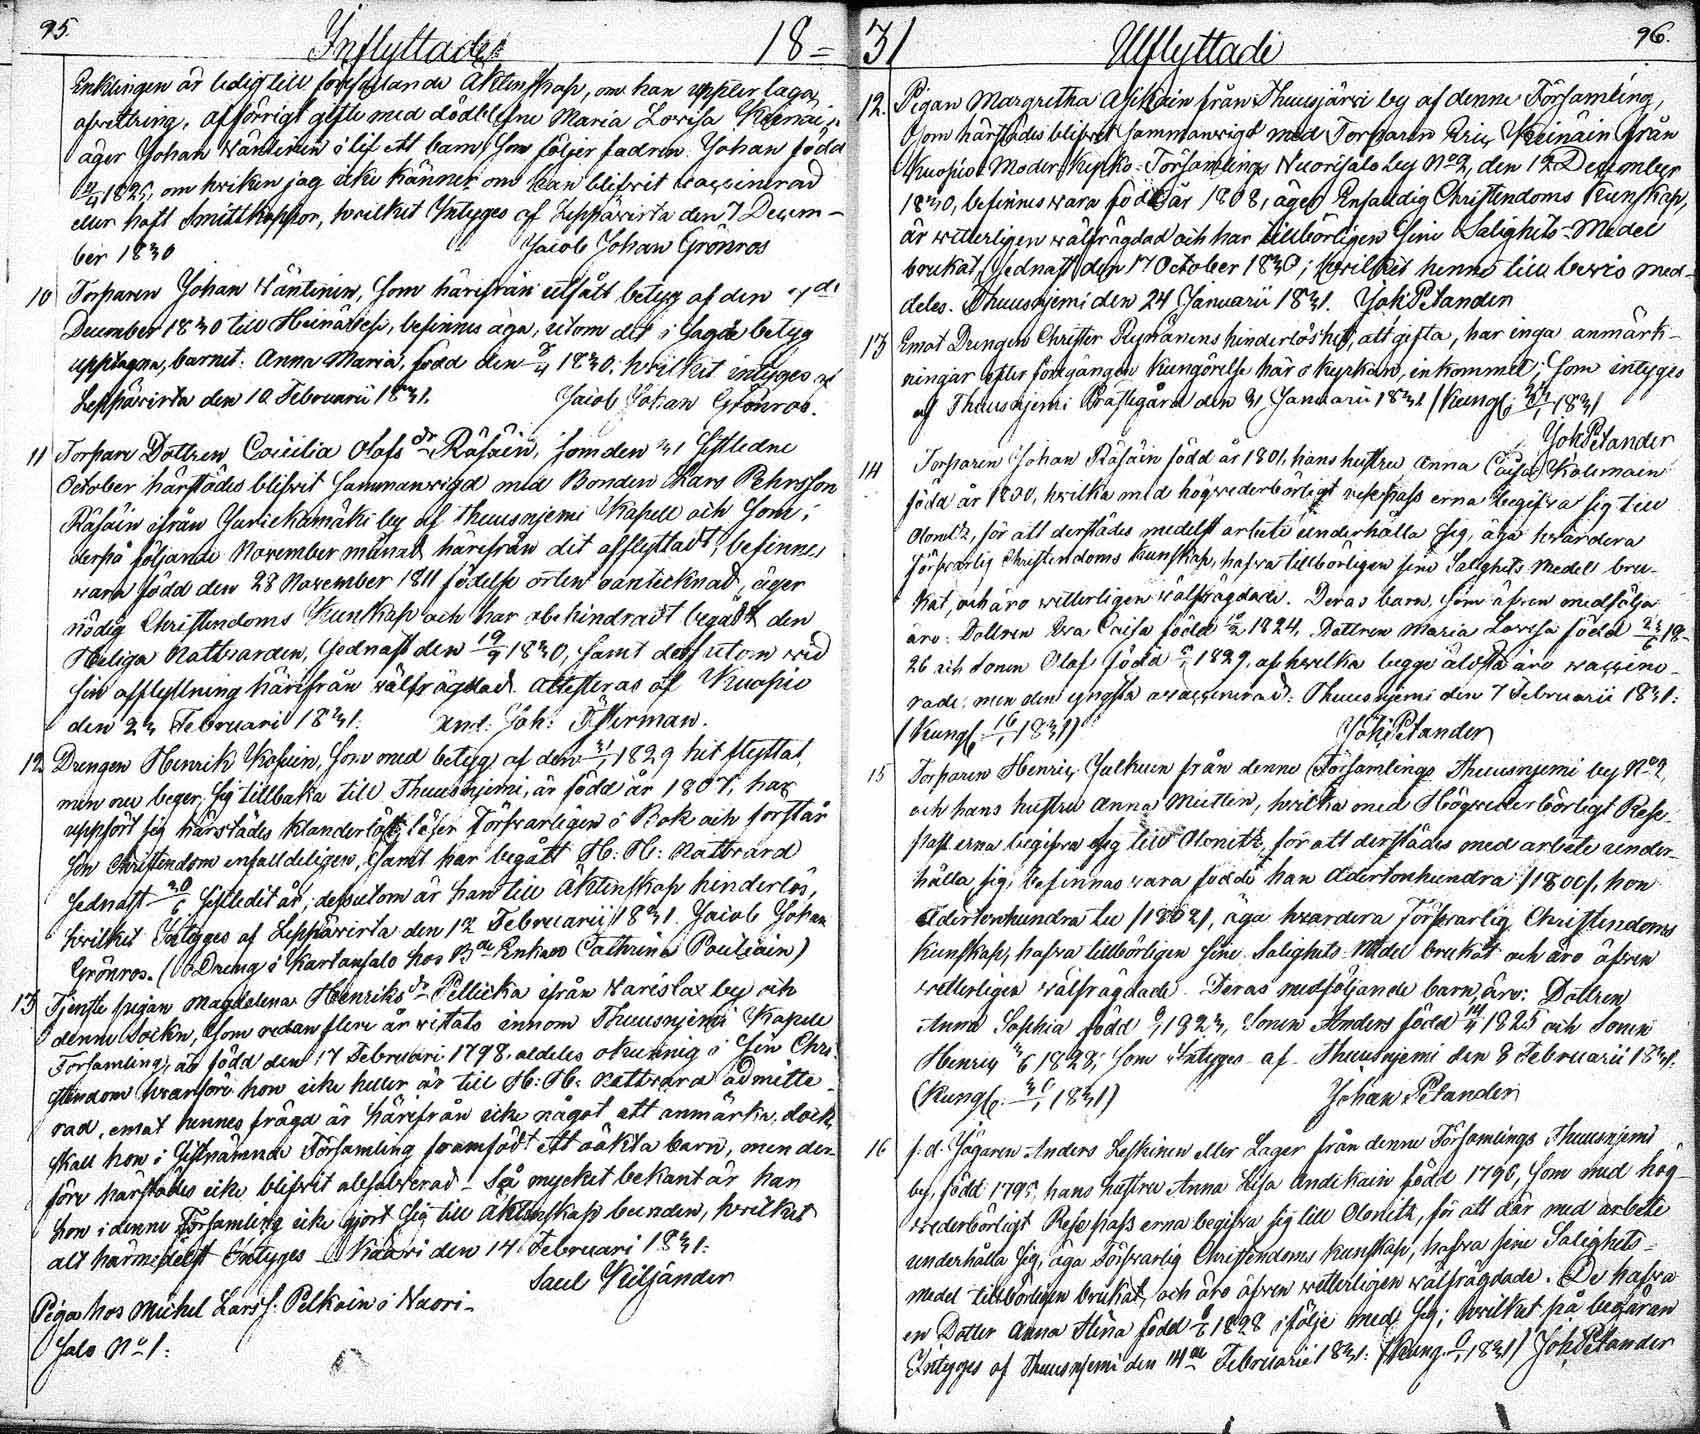 95.
Inflyttade
18=
Enklingen är ledig till förestående Äktenskap, om han uppter laga
afwittring, afförrigt gifte med dödblefne Maria Lovisa
äger Johan Wäntinen i lif ett barn som följer fadren Johan född
1825, om hvilken jag icke känner om han blifwit waccinerad
eller haft Smittkoppor, hvilket Intyges af Leppäwirta den 7 Decem-
ber 1830 Jacob Johan Grönros
10 Torparen Johan Wäntinen, som härifrån utfått betyg af den 7de
December 1830 till Heinäwesi, befinnes äga, utom det i sagde betyg
upptagna, barnet: Anna Maria, född den 1830. hvilket intyges af
Leppäwirta den 10 Februarii 1831. Jacob Johan Grönros.
11 Torpare Dottren Cecilia Olofs dr Räsäin, som den 31 sistledne
October härstädes blifwit sammanwigd med Bonden Lars Pehrsson
Räsäin ifrån Juriekamäki by af Thuusnjemi Kapell och som i
derpå följande November månad härifrån dit afflyttadt, befinnes
wara född den 28 November 1811 födelse orten oantecknad, äger
nödig Christendoms Kunskap och har obehindradt begådt den
Heliga Nattvarden, sednast den 19/9 1830, samt dessutom wid
sin afflyttning härifrån wälfrägdad. Attesteras af Kuopio
den 23 Februari 1831. Joh:
12 Drengen Henrik Kosuin, som med betyg af den 31/1 1829 hit flyttat,
men nu beger sig tillbaka till Thuusnjemi, är född år 1807, har
uppfört sig härstädes klanderlöst, läser Försvarligen i Bok och förstår
sin Christendom enfalldeligen, samt har begått H: H: Nattvard
sednast 20/6 sistledit år; dessutom är han till Äktenskap hinderlös,
hvilket Intyges af Leppäwirta den 12 Februarii 1831. Jacob Johan
Grönros. (Dreng i Kartansalo hos Bde Enkan Cathrina Pouliain)
13 Tjenste pigan Magdalena Henriksdr Pellicka ifrån Warislax by och
denne Sockn, som redan flere år wistats innom Thuusnjemi Kapell
Församling, är född den 17 Februari 1798, aldeles okunnig i sin Chri-
stendom hwarföre hon icke heller är till H: H: Nattvard admitte-
rad, emot hennes fräjd är härifrån icke något att anmärka, dock
skall hon i sistnämnda Församling framfödt ett oäkta barn, men der-
före härstädes icke blifvit absolverad. Så mycket bekant är har
hon i denne Församling icke gjort sig till Äktenskap bunden, hvilket
alt härmedelst Intyges Kaawi den 14 Februari 1831.
Saul Kiljander
Piga hos Michel Larss: Pelkoin i Nuori-
salo No 1.
31
Utflyttade
96.
12. Pigan Margretha Asikain från Thuusjärwi by af denne Församling,
som härstädes blifwit sammanwigd med Torparen Eric Keinäin från
Kuopio Moder Kyrko-Församlings Nuorisalo by No 2, den 12 December
1830, befinnes wara född år 1808, äger Enfaldig Christendoms Kunskap,
är witterligen wälfrägdad och har tillbörligen sine Salighets-Medel
brukat, sednast den 17 October 1830; hwilket henne till bewis med-
deles. Thuusnjemi den 24 Januarii 1831. Joh: Petander
13 Emot Drengen Christer hinderlöshet, att gifta, har inga anmärk-
ningar efter föregången kungörelse här i kyrkan, inkommit, som intyges
af Thuusnjemi Prästegård den 31 Januarii 1831 (Kungf. 1831)
Joh Petander
14 Torparen Johan Räsäin född år 1801, hans hustru Anna Caisa Kolemain
född år 1800, hvilka med högvederbörligt respass erna begifva sig till
Olonetz, för att derstädes medelst arbete underhålla sig, äga hwardera
Försvarlig Christendoms kunskap, hafva tillbörligen sine Salighets Medel bru-
kat, och äro witterligen wälfrägdade. Deras barn, som äfven medfölja
äro: Dottren Eva Caisa född 1824, Dottren Maria Lovisa född 18-
26 och Sonen Olof född 1829, af hvilka begge äldsta äro waccine-
rade; men den yngsta owaccinerad. Thuusnjemi den 7 Februarii 1831:
(Kungf. 16/1 1831) Joh: Petander
15 Torparen Henric Jalkuin från denne Församlings Thuusnjemi by No 2,
och hans hustru Anna Miettin, hwilka med Högwederbörligt Rese-
pass erna begifva sig till Olonitz, för att derstädes med arbete under-
hålla sig, befinnas wara födde han Adertonhundra /1800/, hon
Adertonhundra två /1802/, äga hwardera Försvarlig Christendoms
Kunskap, hafwa tillbörligen sine Salighets Medel brukat och äro äfwen
witterligen wälfrägdade. Deras medföljande barn, äro: Dottren
Anna Sophia född 1823, Sonen Anders född 1825 och Sonen
Henric 1828; som Intyges af Thuusnjemi den 8 Februarii 1831.
(Kungf. 30/1 1831) Johan Petander
16 f. d. Jägaren Anders Leskinen eller Lager från denne Församlings Thuusnjemi
by, född 1795, hans hustru Anna Lisa född 1796, som med hög-
wederbörligt Resepass erna begifva sig till Olonitz, för att där med arbete
underhålla sig, äga Försvarlig Christendoms kunskap, hafva sine Salighets-
medel tillbörligen brukat, och äro äfven witterligen wälfrägdade. De hafva
en Dotter Anna Stina född 1828 ifölje med sig; hwilket på begäran
Intyges af Thuusnjemi den 14de Februarii 1831. (Kung. 1831) Joh: Petander